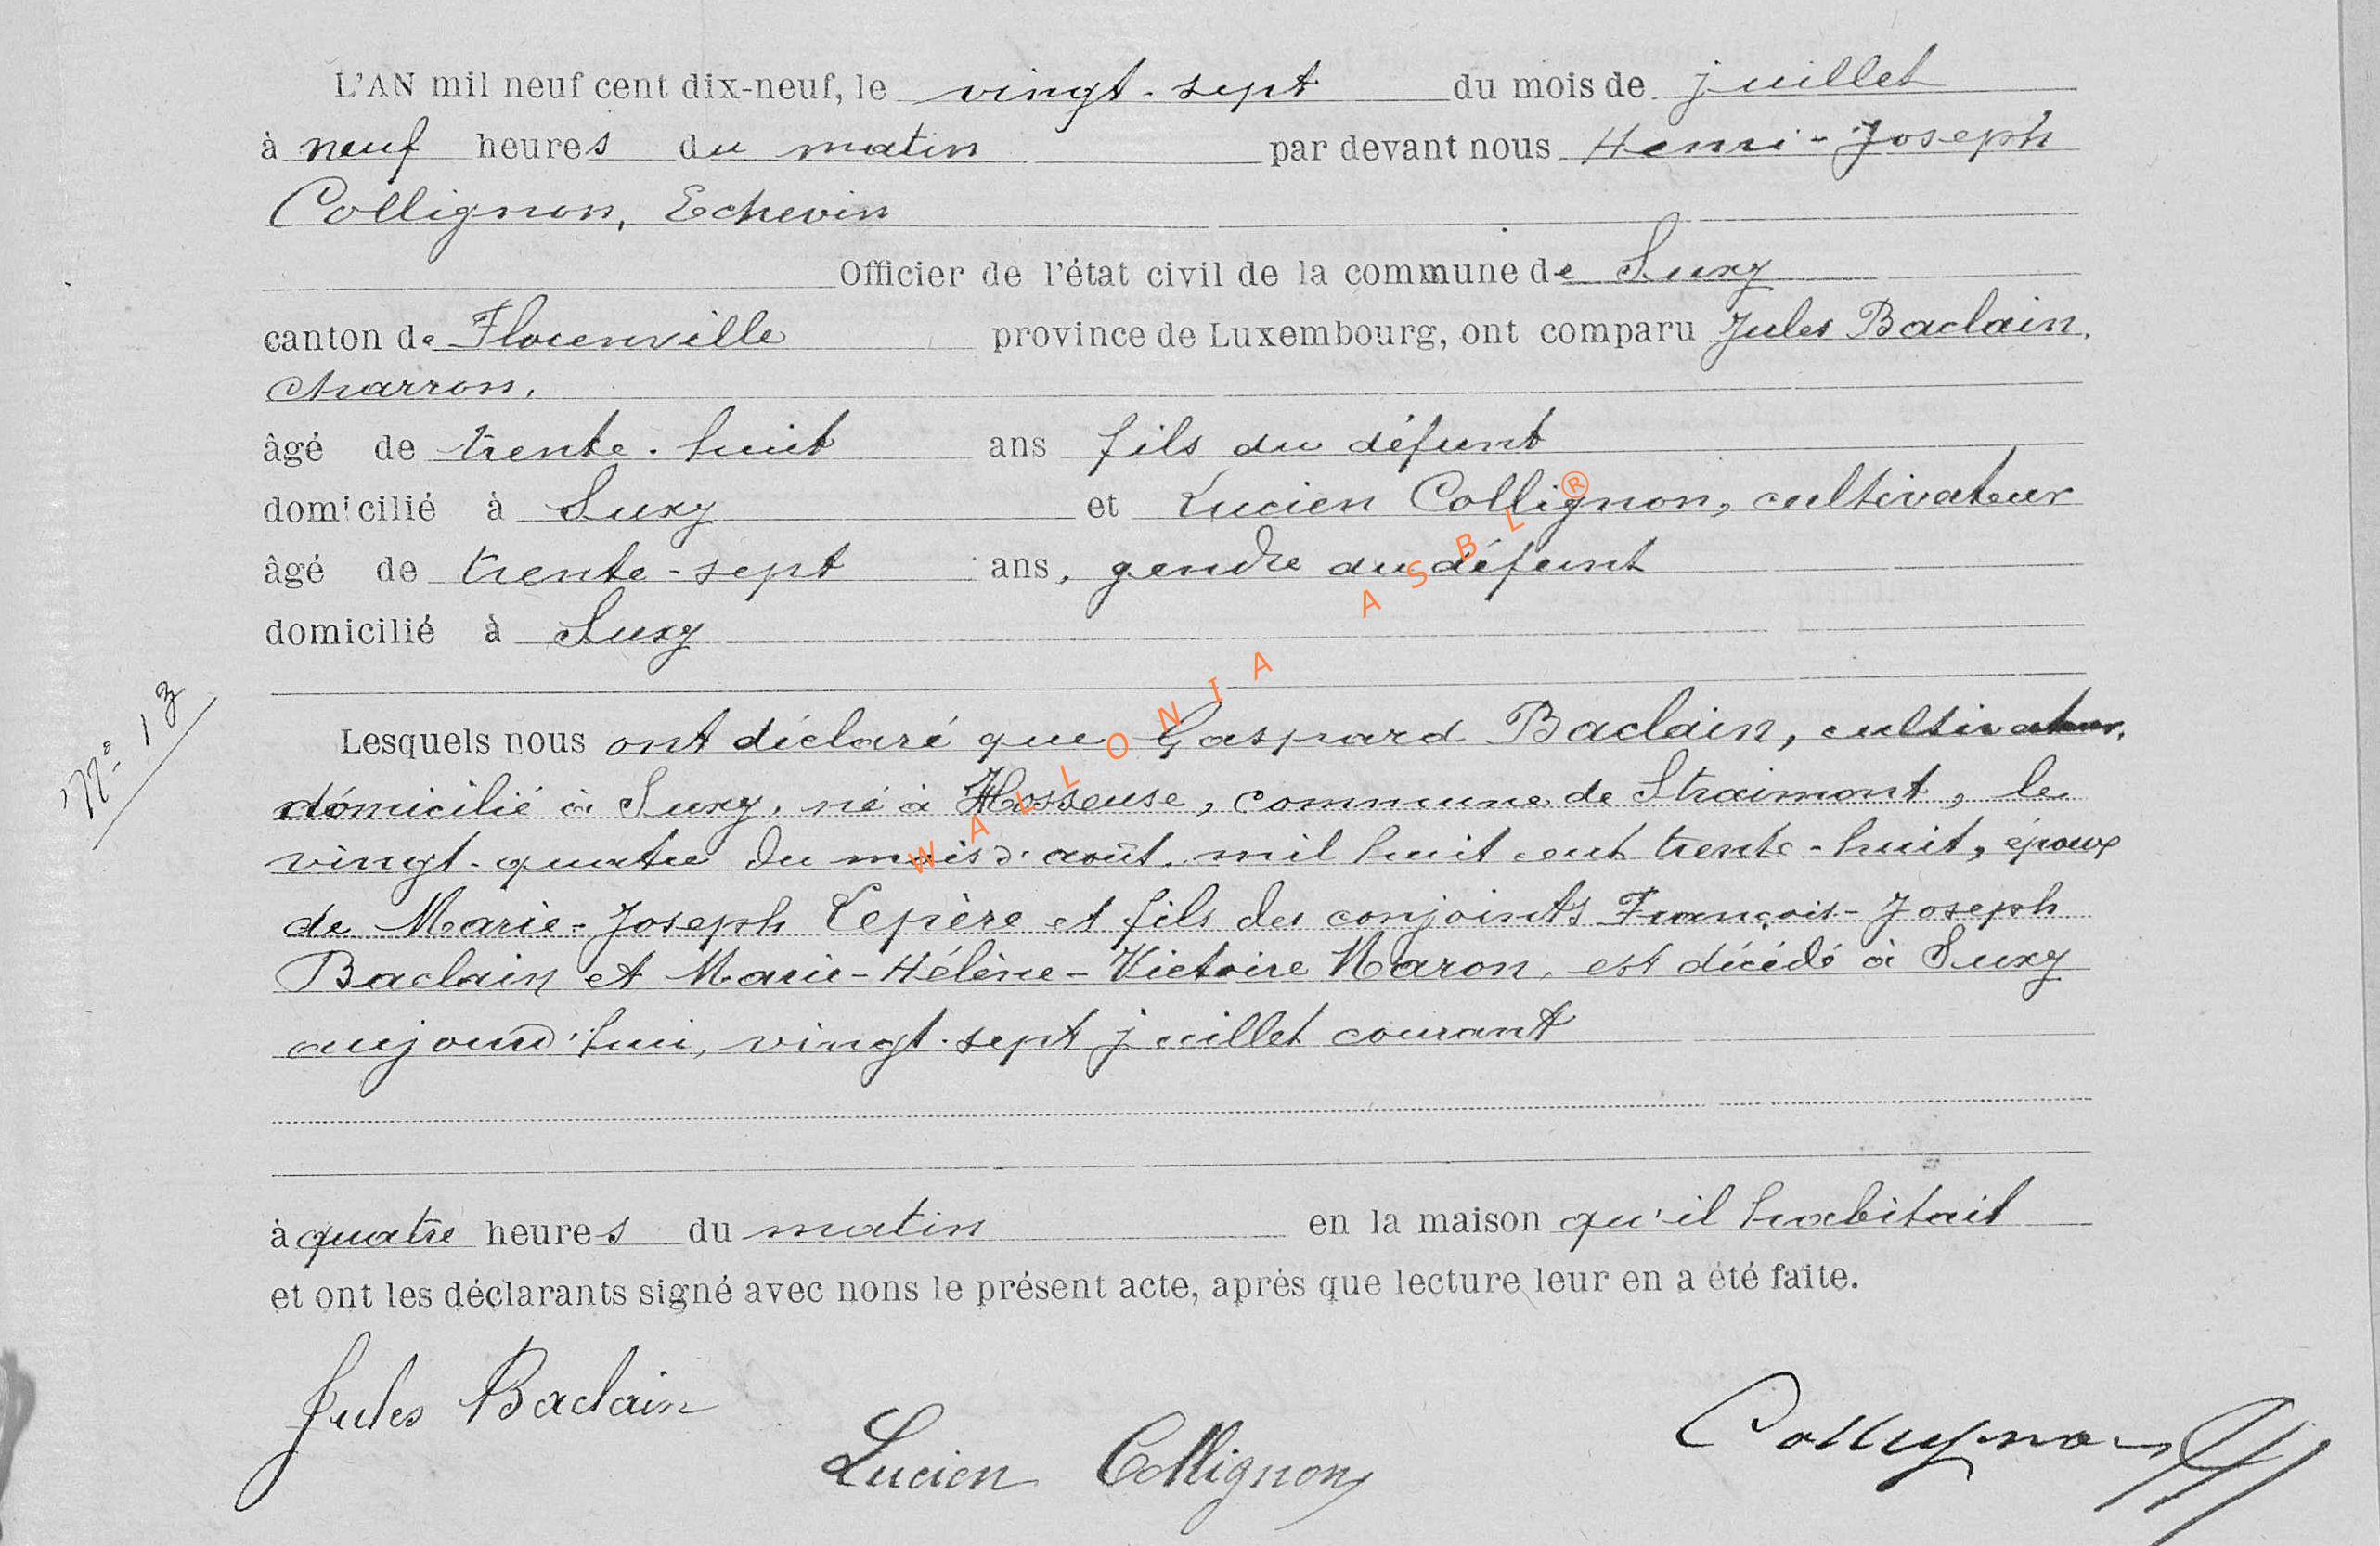 L'AN mil neuf cent dix-neuf, le vingt-sept du mois de juillet
à neuf heures du matin par devant nous Henri-Joseph
Collignon, Echevin
Officier de l'état civil de la commune de Suxy
canton de Florenville province de Luxembourg, ont comparu Jules Baclain,
charron,
âgé de trente-huit ans fils du défunt
domicilié à Suxy et Lucien Collignon, cultivateur
âgé de trente-sept ans, gendre du défunt
domicilié à Suxy
N° 13
Lesquels nous ont déclaré que Gaspard Baclain, cultivateur,
domicilié à Suxy, né à Hosseuse, commune de Straimont, le
vingt-quatre du mois d'août mil huit cent trente-huit, époux
de Marie-Joseph Lepère et fils des conjoints François-Joseph
Baclain et Marie-Hélène-Victoire Maron, est décédé à Suxy
aujourd'hui, vingt-sept juillet courant
à quatre heures du matin en la maison qu'il habitait
et ont les déclarants signé avec nons le présent acte, après que lecture leur en a été faite.
Jules Baclain
Lucien Collignon
Collignon
WALLONIA ASBL ®